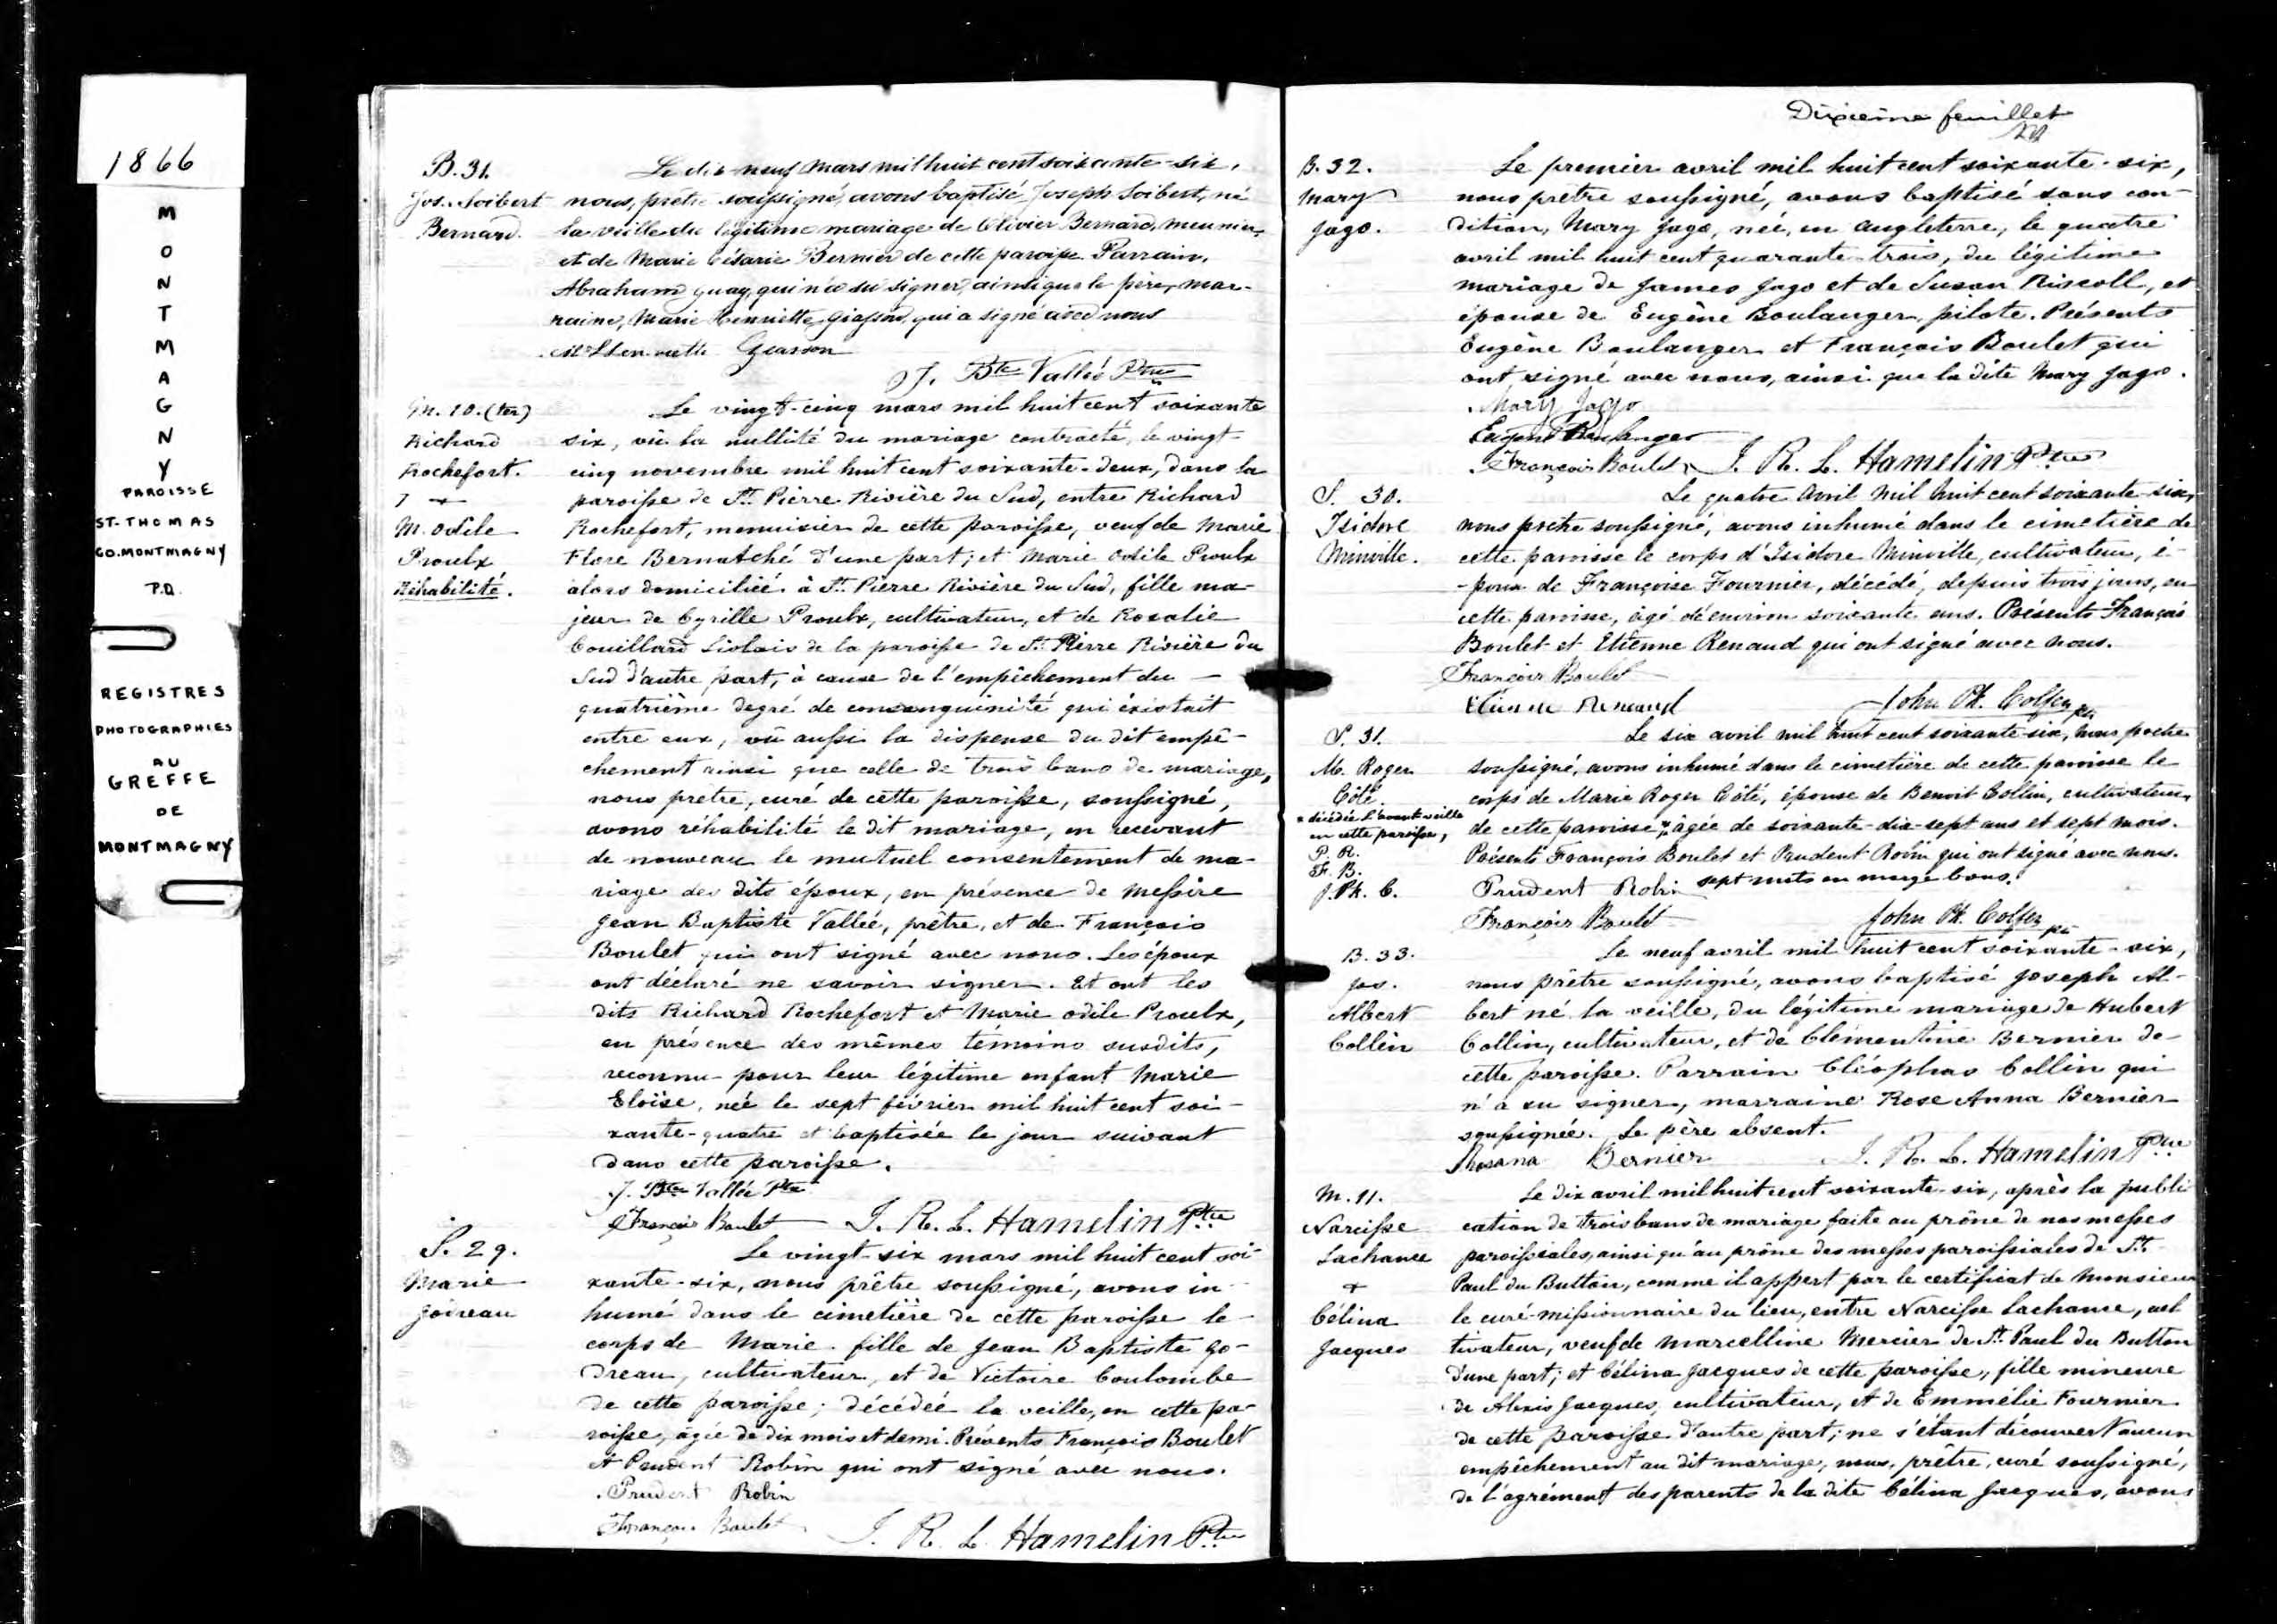 1866
MONTMAGNY
PAROISSE
ST-THOMAS
CO. MONTMAGNY
P.Q.
REGISTRES
PHOTOGRAPHIES
AU
GREFFE
DE
MONTMAGNY
B. 31.
Jos. Soibert
Bernard.
Le dix-neuf mars mil huit cent soixante-six,
nous, prêtre soussigné, avons baptisé Joseph Soibert, né
la veille du légitime mariage de Olivier Bernard, meunier,
et de Marie Césarie Bernier de cette paroisse. Parrain,
Abraham Guay, qui n'a su signer, ainsi que le père, mar-
raine, Marie Henriette Giasson, qui a signé avec nous
Henriette Giasson
J. Bte Vallée Ptre
M. 10. (ter)
Richard
Rochefort.
&
M. Odile
Proulx
Réhabilité.
Le vingt-cinq mars mil huit cent soixante
six, vû la nullité du mariage contracté, le vingt-
cinq novembre mil huit cent soixante-deux, dans la
paroisse de St. Pierre Rivière du Sud, entre Richard
Rochefort, menuisier de cette paroisse, veuf de Marie
Flore Bernatché d'une part; et Marie Odile Proulx
alors domiciliée à St. Pierre Rivière du Sud, fille ma-
jeur de Cyrille Proulx, cultivateur, et de Rosalie
Couillard Lislais de la paroisse de St. Pierre Rivière du
Sud d'autre part, à cause de l'empêchement du —
quatrième degré de consanguinité qui éxistait
entre eux, vû aussi la dispense du dit empê-
chement ainsi que celle de trois bans de mariage,
nous prêtre, curé de cette paroisse, soussigné,
avons réhabilité le dit mariage, en recevant
de nouveau le mutuel consentement de ma-
riage des dits époux, en présence de Messire
Jean Baptiste Vallée, prêtre, et de François
Boulet qui ont signé avec nous. Les époux
ont déclaré ne savoir signer. Et ont les
dits Richard Rochefort et Marie Odile Proulx,
en présence des mêmes témoins susdits,
reconnu pour leur légitime enfant Marie
Eloïse, née le sept février mil huit cent soi-
xante-quatre et baptisée le jour suivant
dans cette paroisse.
J. Bte Vallée Ptre
François Boulet J. R. L. Hamelin Ptre
S. 29.
Marie
Goireau
Le vingt-six mars mil huit cent soi-
xante-six, nous prêtre soussigné, avons in-
humé dans le cimetière de cette paroisse le
corps de Marie fille de Jean Baptiste Go-
dreau, cultivateur, et de Victoire Coulombe
de cette paroisse; décédée la veille, en cette pa-
roisse, âgée de dix mois et demi. Présents François Boulet
et Prudent Robin qui ont signé avec nous.
Prudent Robin
François Boulet J. R. L. Hamelin Ptre
Dixième feuillet
B. 32.
Mary
Jago.
Le premier avril mil huit cent soixante-six,
nous prêtre soussigné, avons baptisé sous con-
dition, Mary Jago, née, en Angleterre, le quatre
avril mil huit cent quarante-trois, du légitime
mariage de James Jago et de Susan Riscoll, et
épouse de Eugène Boulanger, pilote. Présents
Eugène Boulanger et François Boulet qui
ont signé avec nous, ainsi que la dite Mary Jago.
Mary Jago
Eugène Boulanger
François Boulet J. R. L. Hamelin Ptre
S. 30.
Isidore
Minville.
Le quatre avril mil huit cent soixante-six,
nous prêtre soussigné, avons inhumé dans le cimetière de
cette paroisse le corps d'Isidore Minville, cultivateur, é-
-poux de Françoise Fournier, décédé, depuis trois jours, en
cette paroisse, âgé d'environ soixante ans. Présents François
Boulet et Etienne Renaud qui ont signé avec nous.
François Boulet
Etienne Renaud John Ph. Colfer ptr
S. 31.
M. Roger
Côté.
x décédée l'avant veille
en cette paroisse,
P. R.
F. B.
J. Ph. C.
Le six avril mil huit cent soixante-six, nous prêtre
soussigné, avons inhumé dans le cimetière de cette paroisse le
corps de Marie Roger Côté, épouse de Benoit Collin, cultivateur,
de cette paroisse x âgée de soixante-dix-sept ans et sept mois.
Présents François Boulet et Prudent Robin qui ont signé avec nous.
Prudent Robin sept mots en marge bons.
François Boulet John Ph. Colfer ptr
B. 33.
Jos.
Albert
Collin
Le neuf avril mil huit cent soixante-six,
nous prêtre soussigné, avons baptisé Joseph Al-
bert né la veille, du légitime mariage de Hubert
Collin, cultivateur, et de Clémentine Bernier de
cette paroisse. Parrain Cléophas Collin qui
n'a su signer, marraine Rose Anna Bernier
soussignée. Le père absent.
Rosana Bernier J. R. L. Hamelin Ptre
M. 11.
Narcisse
Lachance
&
Célina
Jacques
Le dix avril mil huit cent soixante-six, après la publi
cation de trois bans de mariage faite au prône de nos messes
paroissiales, ainsi qu'au prône des messes paroissiales de St.
Paul du Button, comme il appert par le certificat de Monsieur
le curé-missionnaire du lieu, entre Narcisse Lachance, cul
tivateur, veuf de Marcelline Mercier de St. Paul du Button
d'une part; et Célina Jacques de cette paroisse, fille mineure
de Alexis Jacques, cultivateur, et de Emmélie Fournier
de cette paroisse d'autre part; ne s'étant découvert aucun
empêchement au dit mariage, nous, prêtre, curé soussigné,
de l'agrément des parents de la dite Célina Jacques, avons